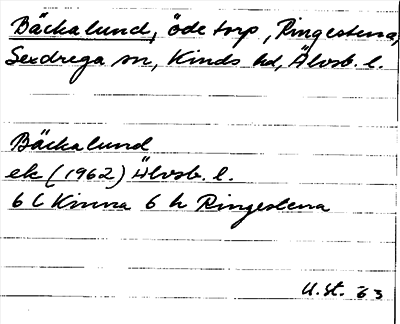 Bäckalund, öde torp, Ringestena,
Sexdrega sn, Kinds hd, Älvsb. l.
Bäckalund
ek (1962) Älvsb. l.
6 C Kinna 6 h Ringestena
U. St. 63